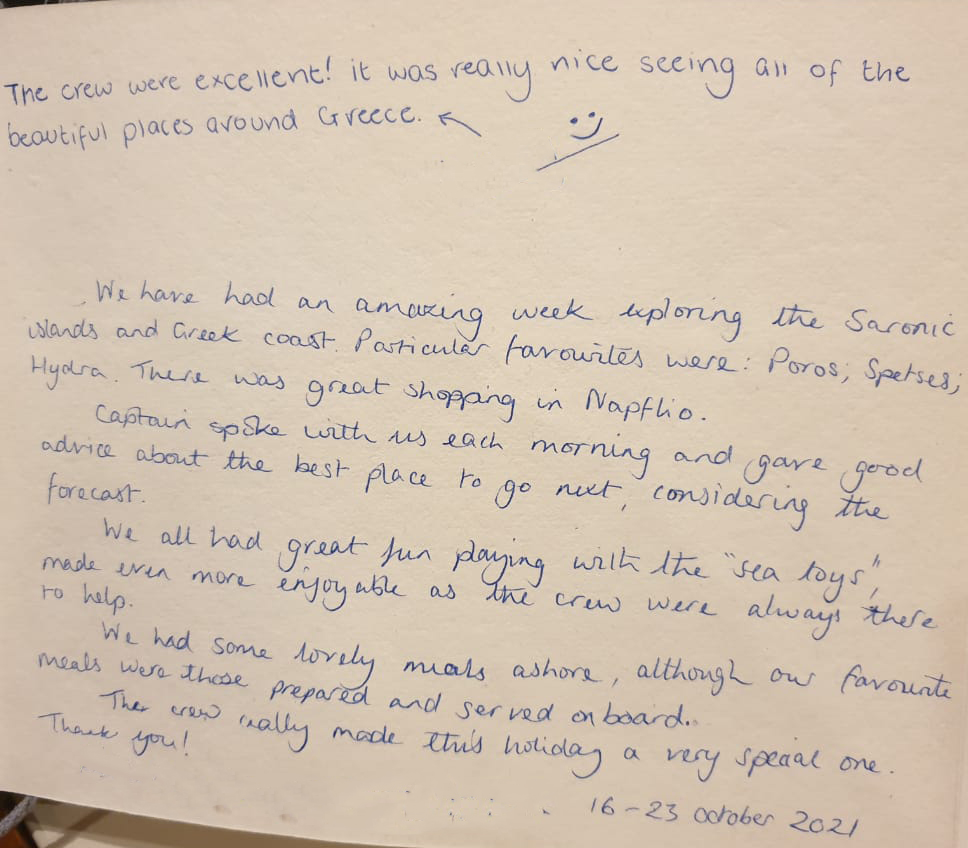 The crew were excellent! it was really nice seeing all of the
beautiful places around Greece.
We have had an amazing week exploring the Saronic
islands and Greek coast. Particular favourites were: Poros; Spetses;
Hydra. There was great shopping in Napflio.
Captain spoke with us each morning and gave good
advice about the best place to go next, considering the
forecast.
We all had great fun playing with the "sea toys",
made even more enjoyable as the crew were always there
to help.
We had some lovely meals ashore, although our favourite
meals were those prepared and served on board.
The crew really made this holiday a very special one.
Thank you!
16-23 October 2021